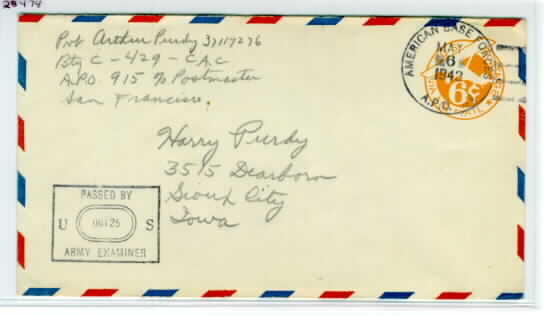 28474
Pvt Arthur Purdy 37117276
Bty C - 429 - C.A.C
A.P.O. 915 % Postmaster
San Francisco.
AMERICAN BASE FORCES
MAY
6
1942
A.P.O.
6¢
Harry Purdy
3515 Dearborn
Sioux City
Iowa
PASSED BY
U 00125 S
ARMY EXAMINER